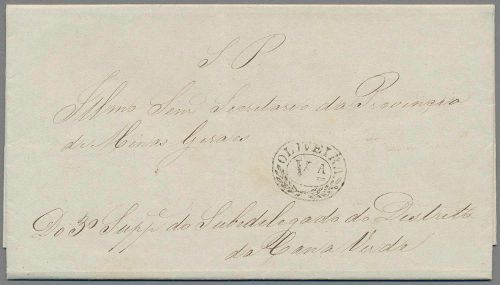 S P
Illmo Senr Secretario da Provincia
de Minas Geraes
OLIVEIRA
V A
Do 3º Suppe do Subdelegado do Districto
da Cana Verde